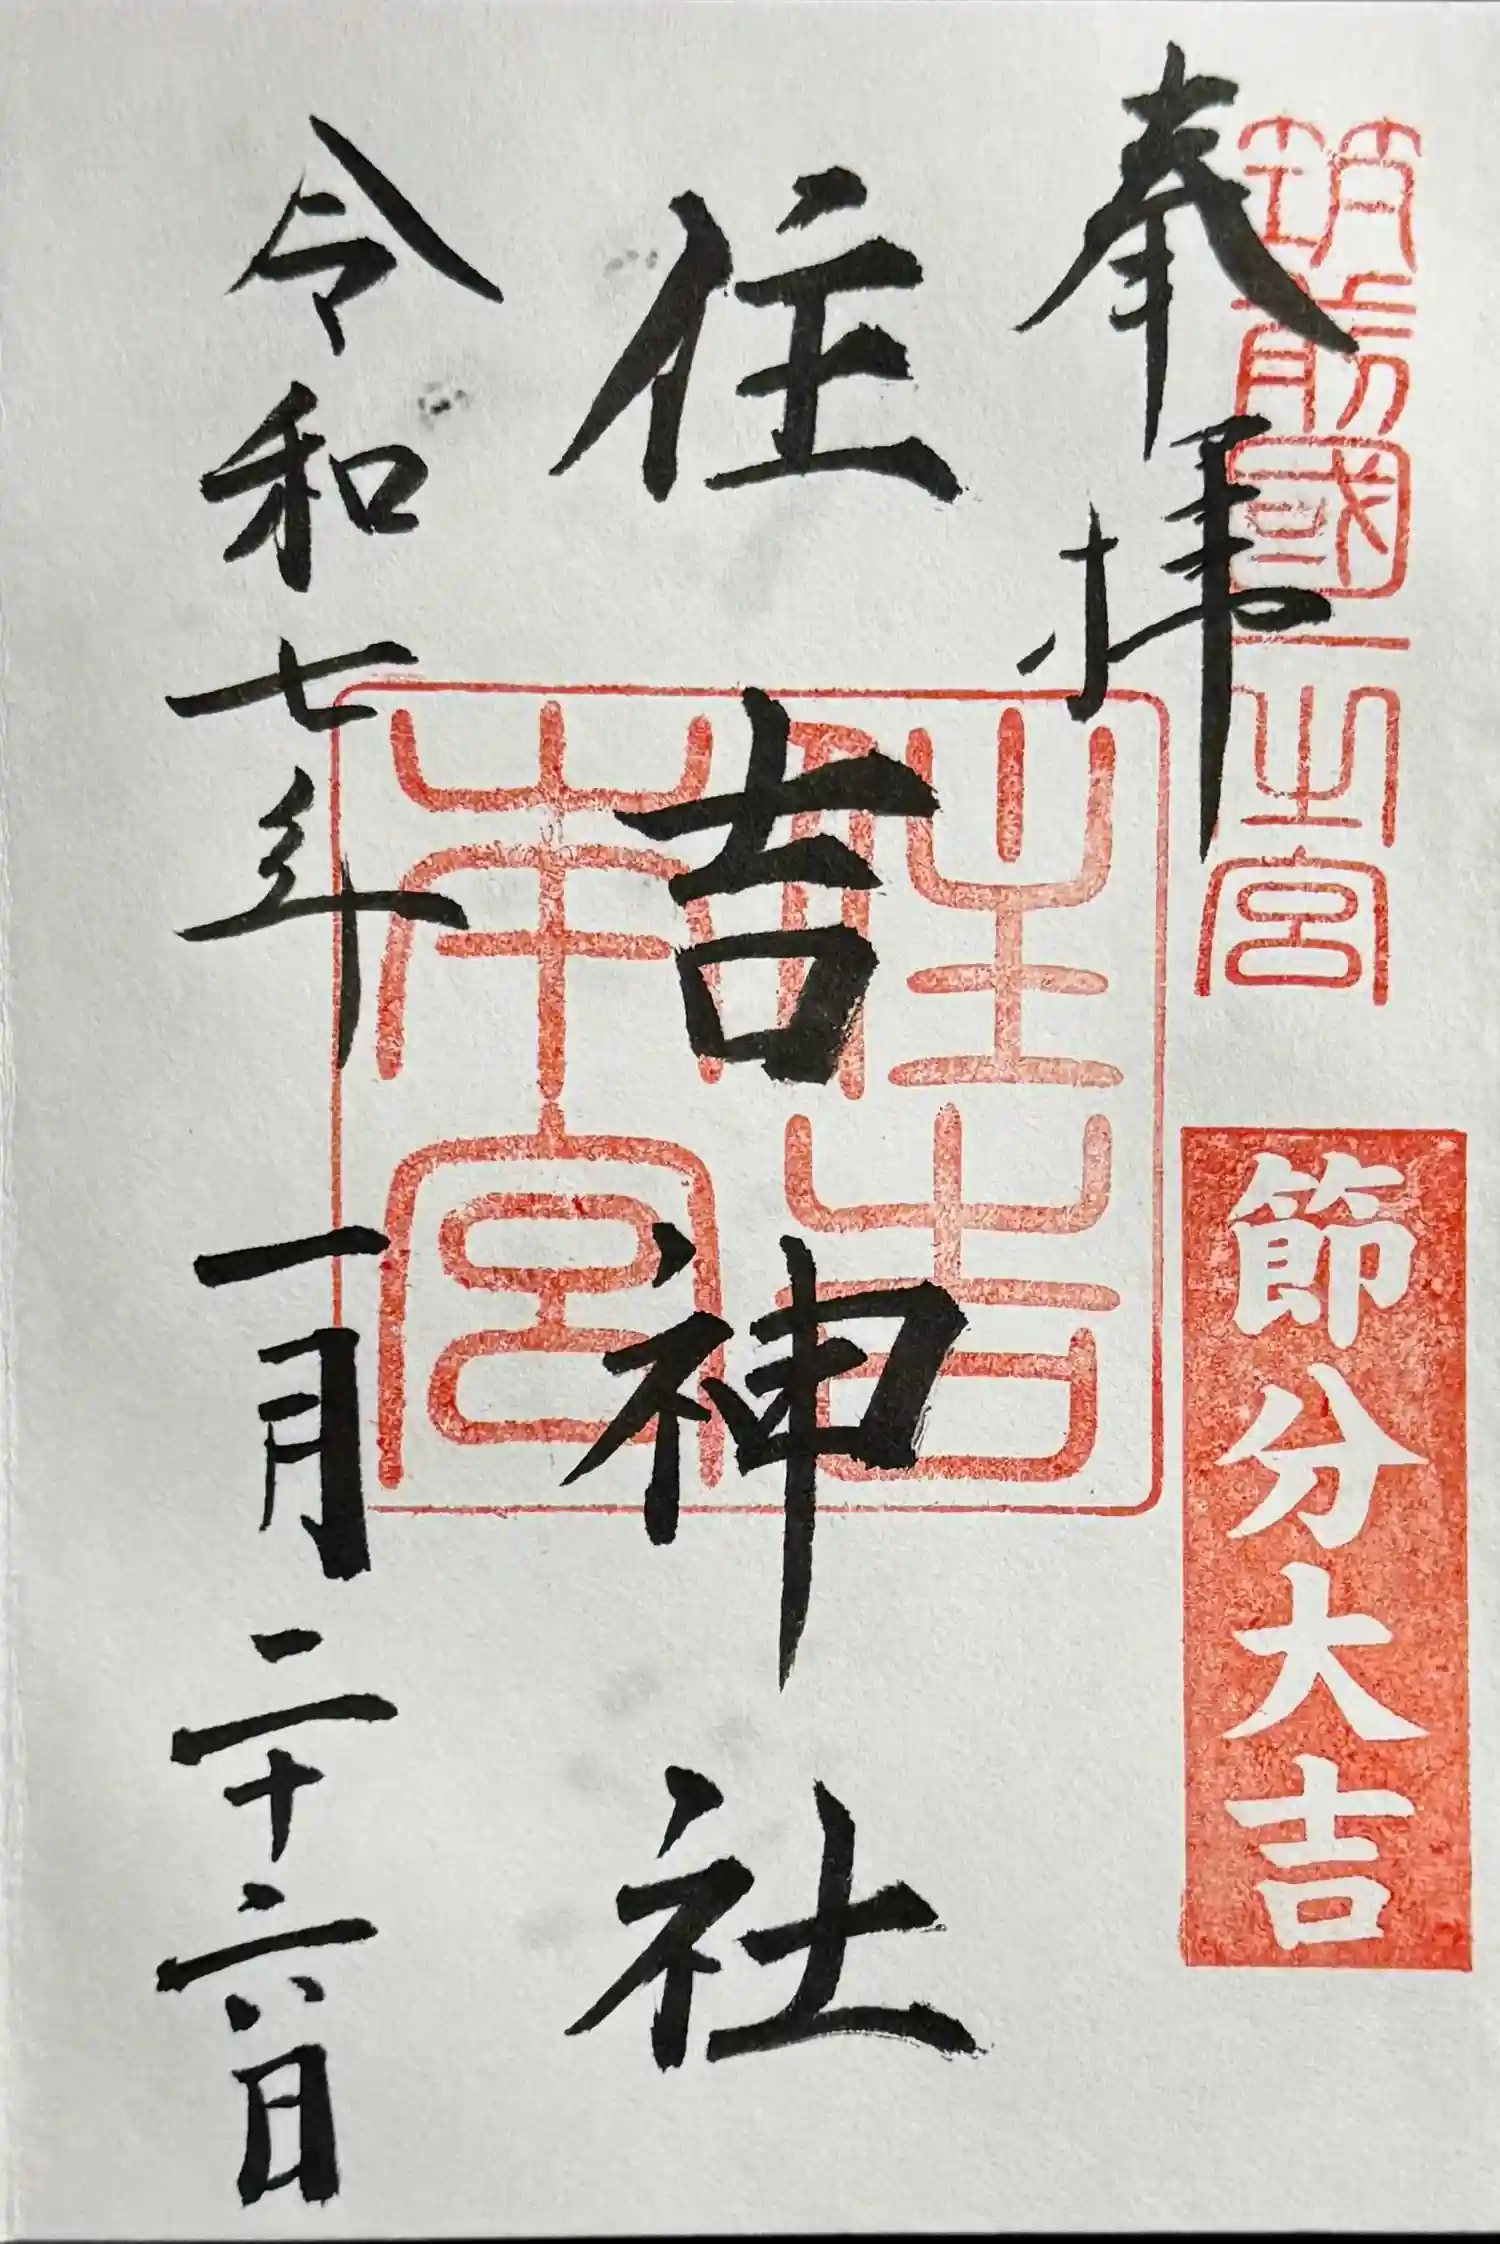 筑前國一之宮
節分大吉
奉拝
住吉神社
住吉本宮
令和七年一月二十六日